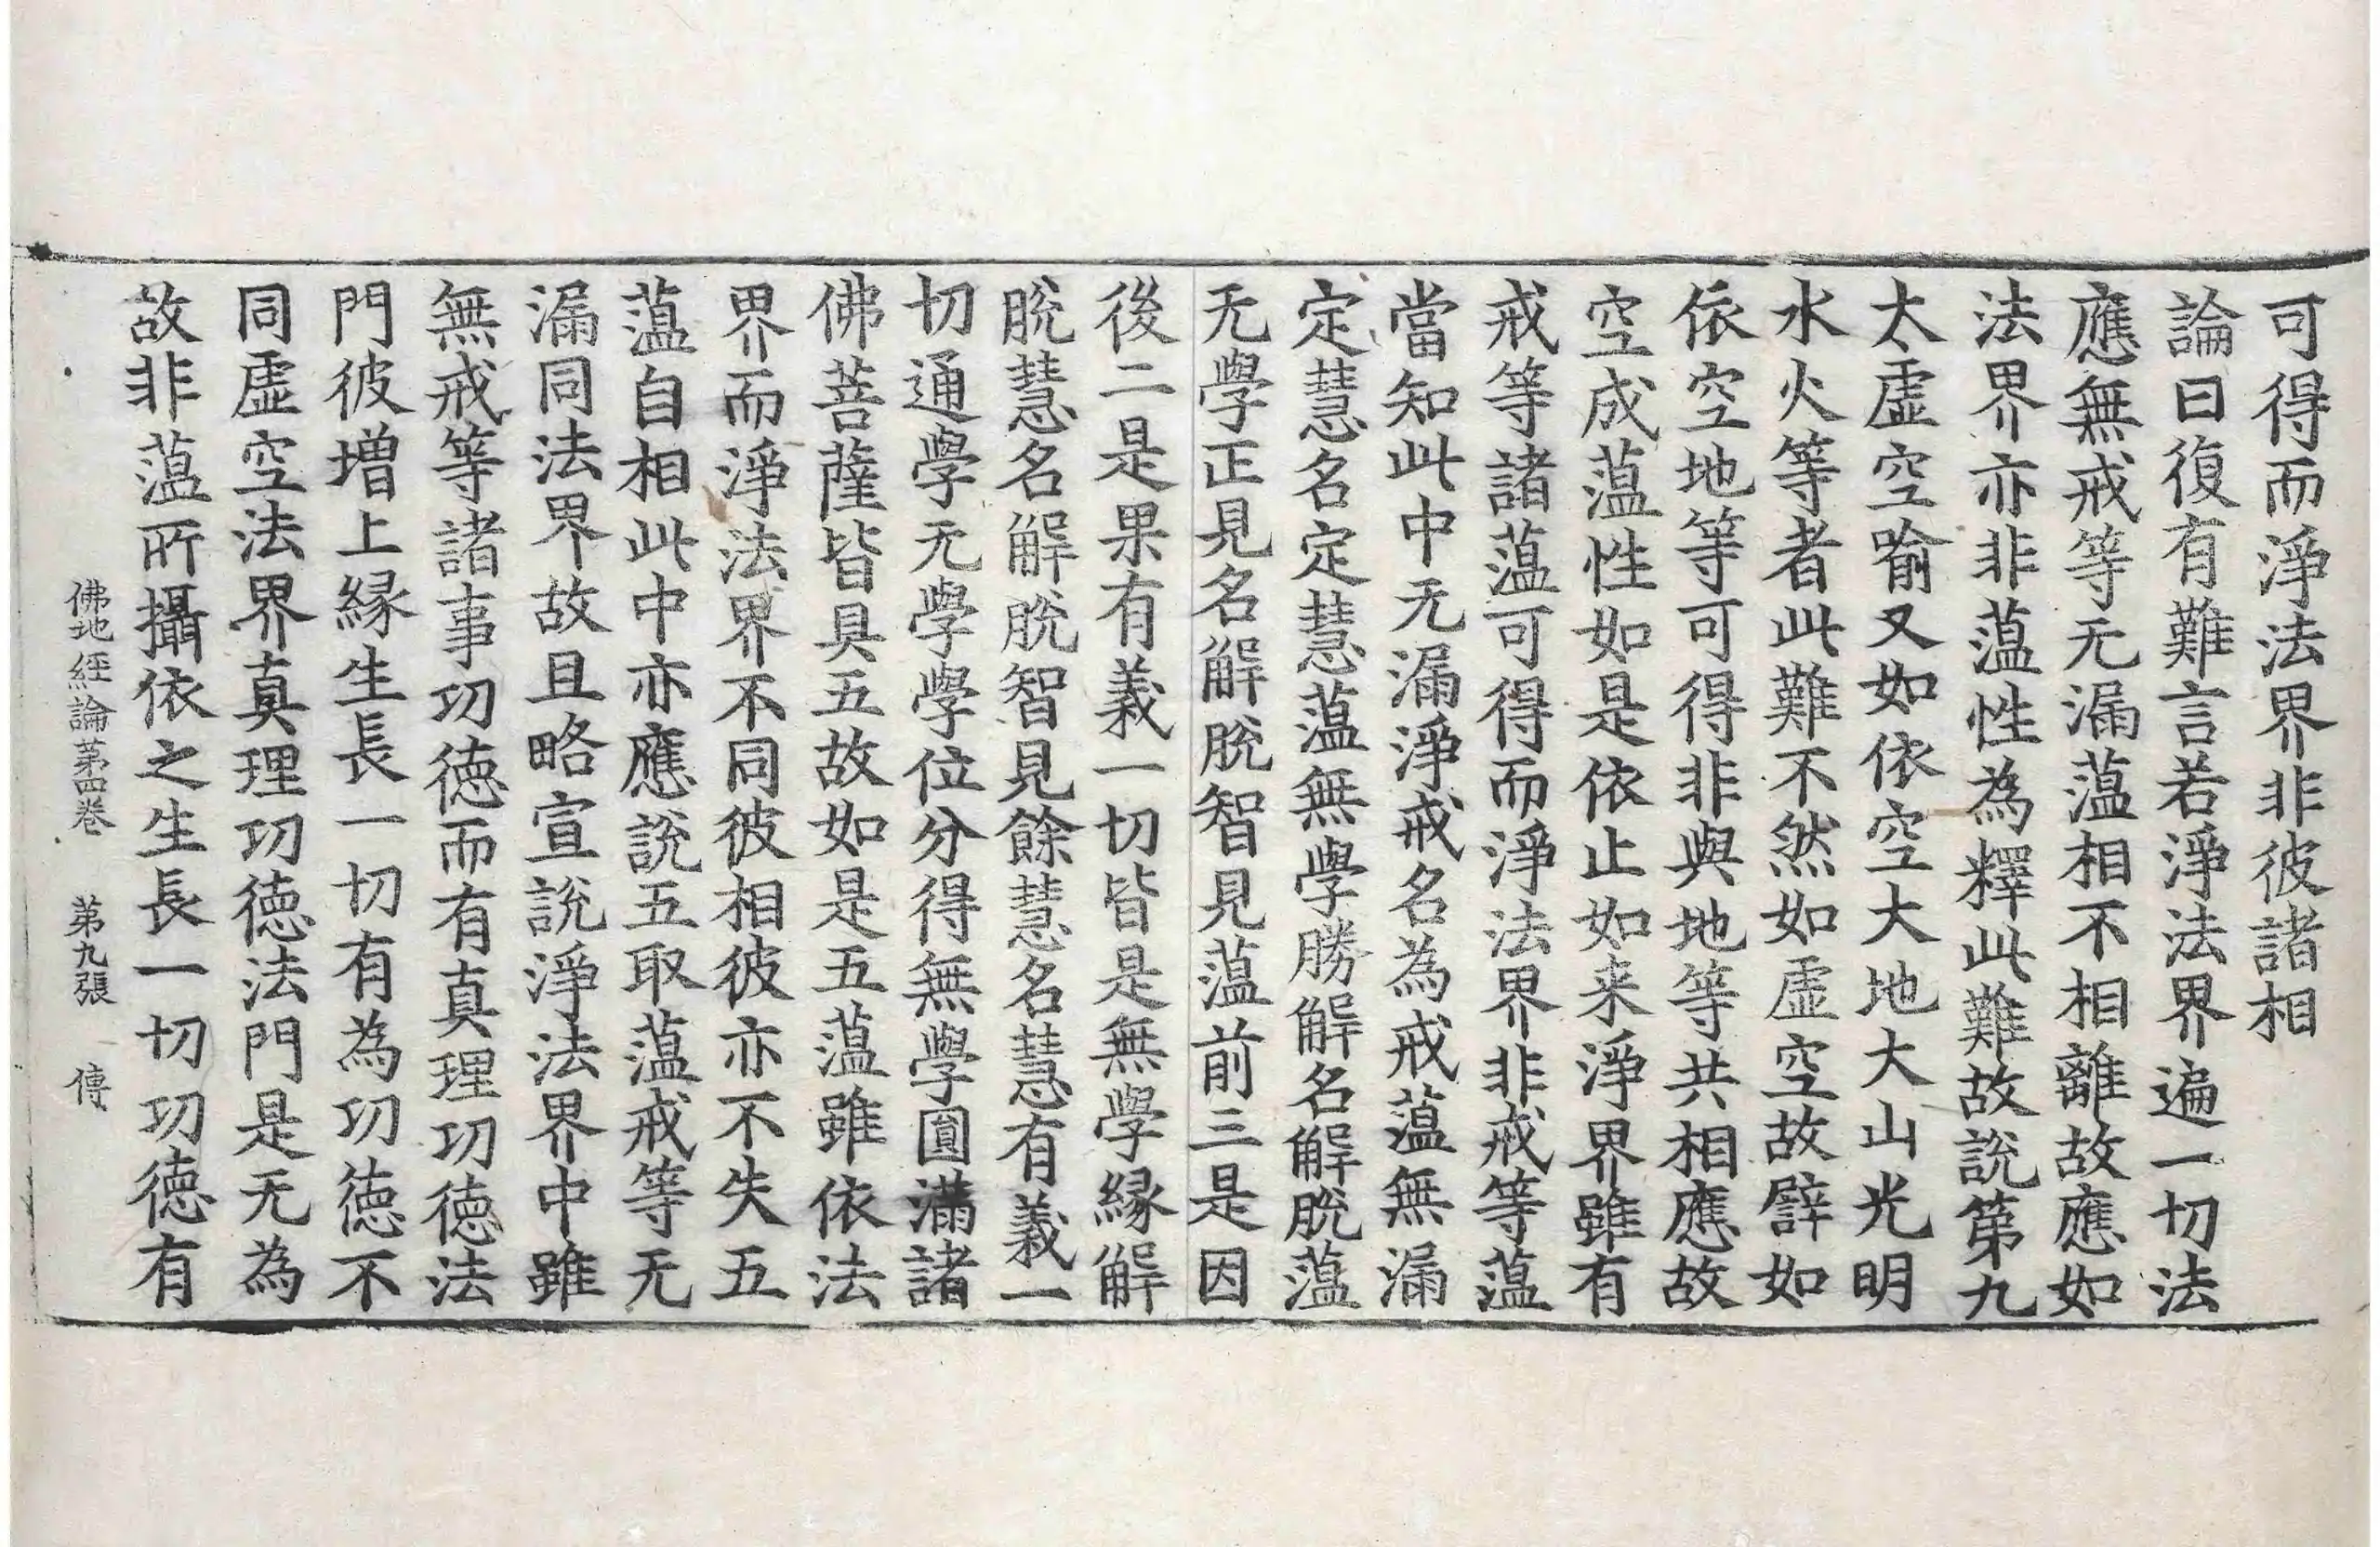 可得而淨法界非彼諸相
論曰復有難言若淨法界遍一切法
應無戒等无漏蕰相不相離故應如
法界亦非蕰性為釋此難故説第九
太虛空喻又如依空大地大山光明
水火等者此難不然如虛空故譬如
依空地等可得非與地等共相應故
空成蕰性如是依止如来淨界雖有
戒等諸蕰可得而淨法界非戒等蕰
當知此中无漏淨戒名為戒蕰無漏
定慧名定慧蕰無學勝解名解脫蕰
无學正見名解脫智見蕰前三是因
後二是果有義一切皆是無學縁解
脫慧名解脫智見餘慧名慧有義一
切通學无學學位分得無學圓滿諸
佛菩薩皆具五故如是五蕰雖依法
界而淨法界不同彼相彼亦不失五
蕰自相此中亦應説五取蕰戒等无
漏同法界故且略宣説淨法界中雖
無戒等諸事功徳而有真理功徳法
門彼增上縁生長一切有為功徳不
同虛空法界真理功徳法門是无為
故非蕰所攝依之生長一切功徳有
佛地經論第四卷 第九張 傳